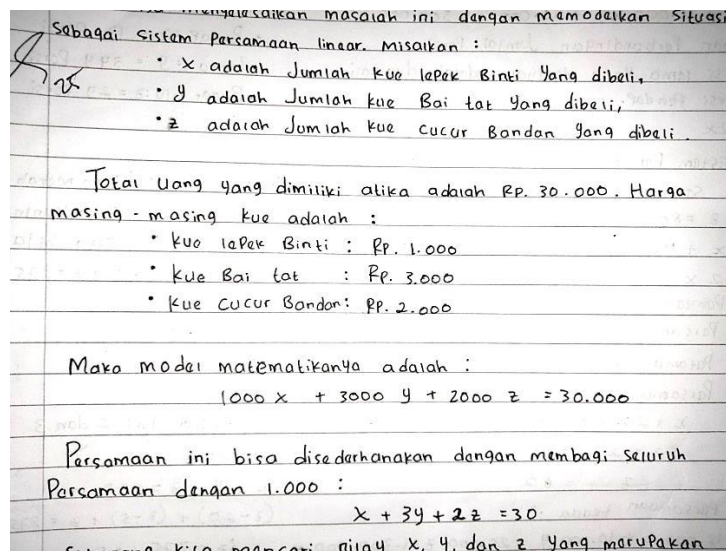 menyelesaikan masalah ini dengan memodelkan situasi
Sebagai sistem persamaan linear. Misalkan :
25
• x adalah Jumlah kue lepek Binti yang dibeli,
• y adalah Jumlah kue Bai tat yang dibeli,
• z adalah Jumlah kue cucur Bandan yang dibeli.
Total uang yang dimiliki atika adalah RP. 30.000. Harga
masing-masing kue adalah :
• kue lepek Binti : Rp. 1.000
• kue Bai tat : Rp. 3.000
• kue cucur Bandan : Rp. 2.000
Maka model matematikanya adalah :
1000 x + 3000 y + 2000 z = 30.000
Persamaan ini bisa disederhanakan dengan membagi seluruh
Persamaan dengan 1.000 :
x + 3y + 2z = 30
kita mencari nilay x, y, dan z yang merupakan